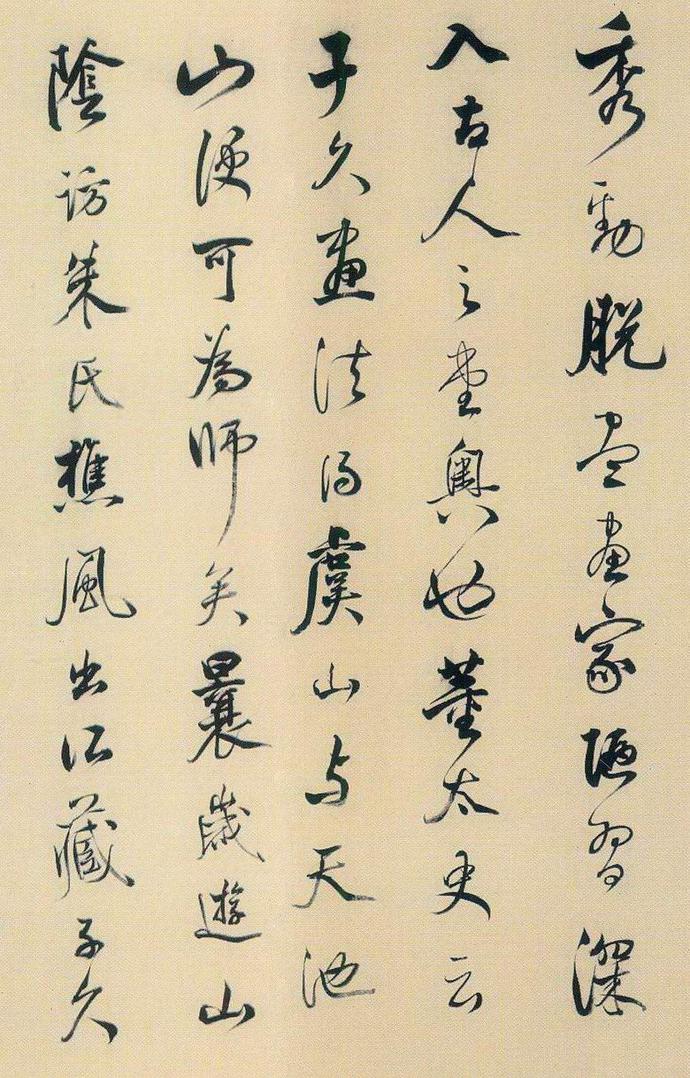 秀勁脫盡畫家陋習深
入古人之堂奧也董太史云
子久畫法得虞山與天池
山便可為師矣曩歲遊山
陰訪朱氏樵風出所藏子久